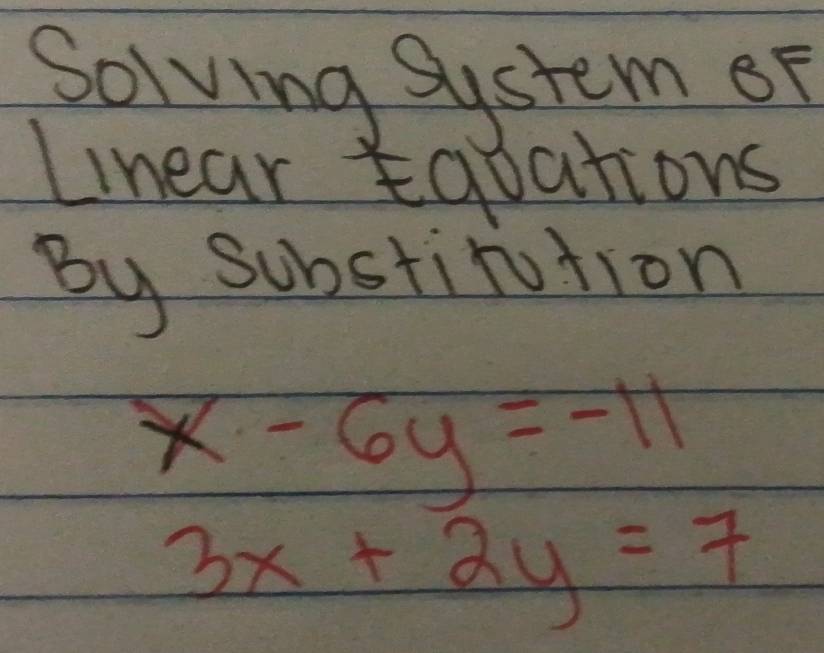 Solving System OF
Linear Equations
By Substitution
x - 6y = -11
3x + 2y = 7